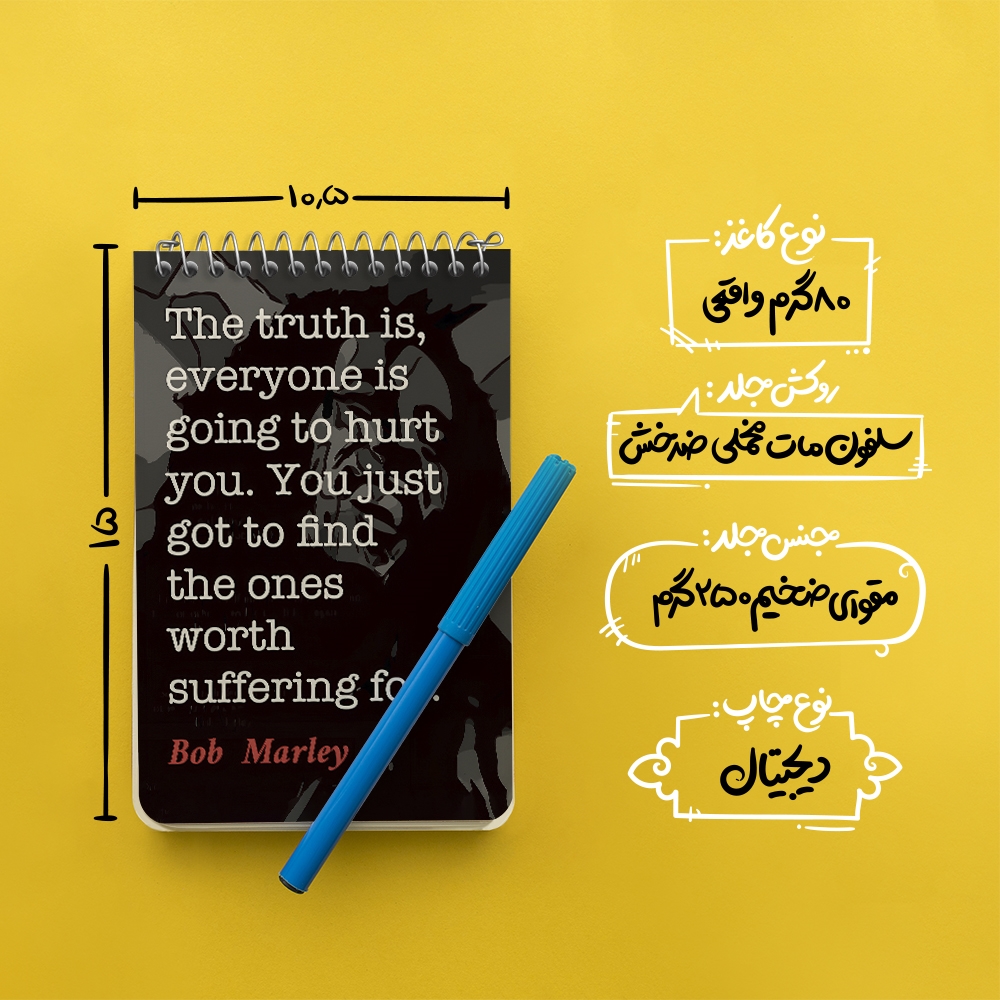 ۱۰٫۵
۱۵
The truth is,
everyone is
going to hurt
you. You just
got to find
the ones
worth
suffering fo .
Bob Marley
نوع کاغذ:
۸۰گرم واقعی
روکش جلد:
سلفون مات مخملی ضدخش
جنس جلد:
مقوای ضخیم ۲۵۰گرم
نوع چاپ:
دیجیتال